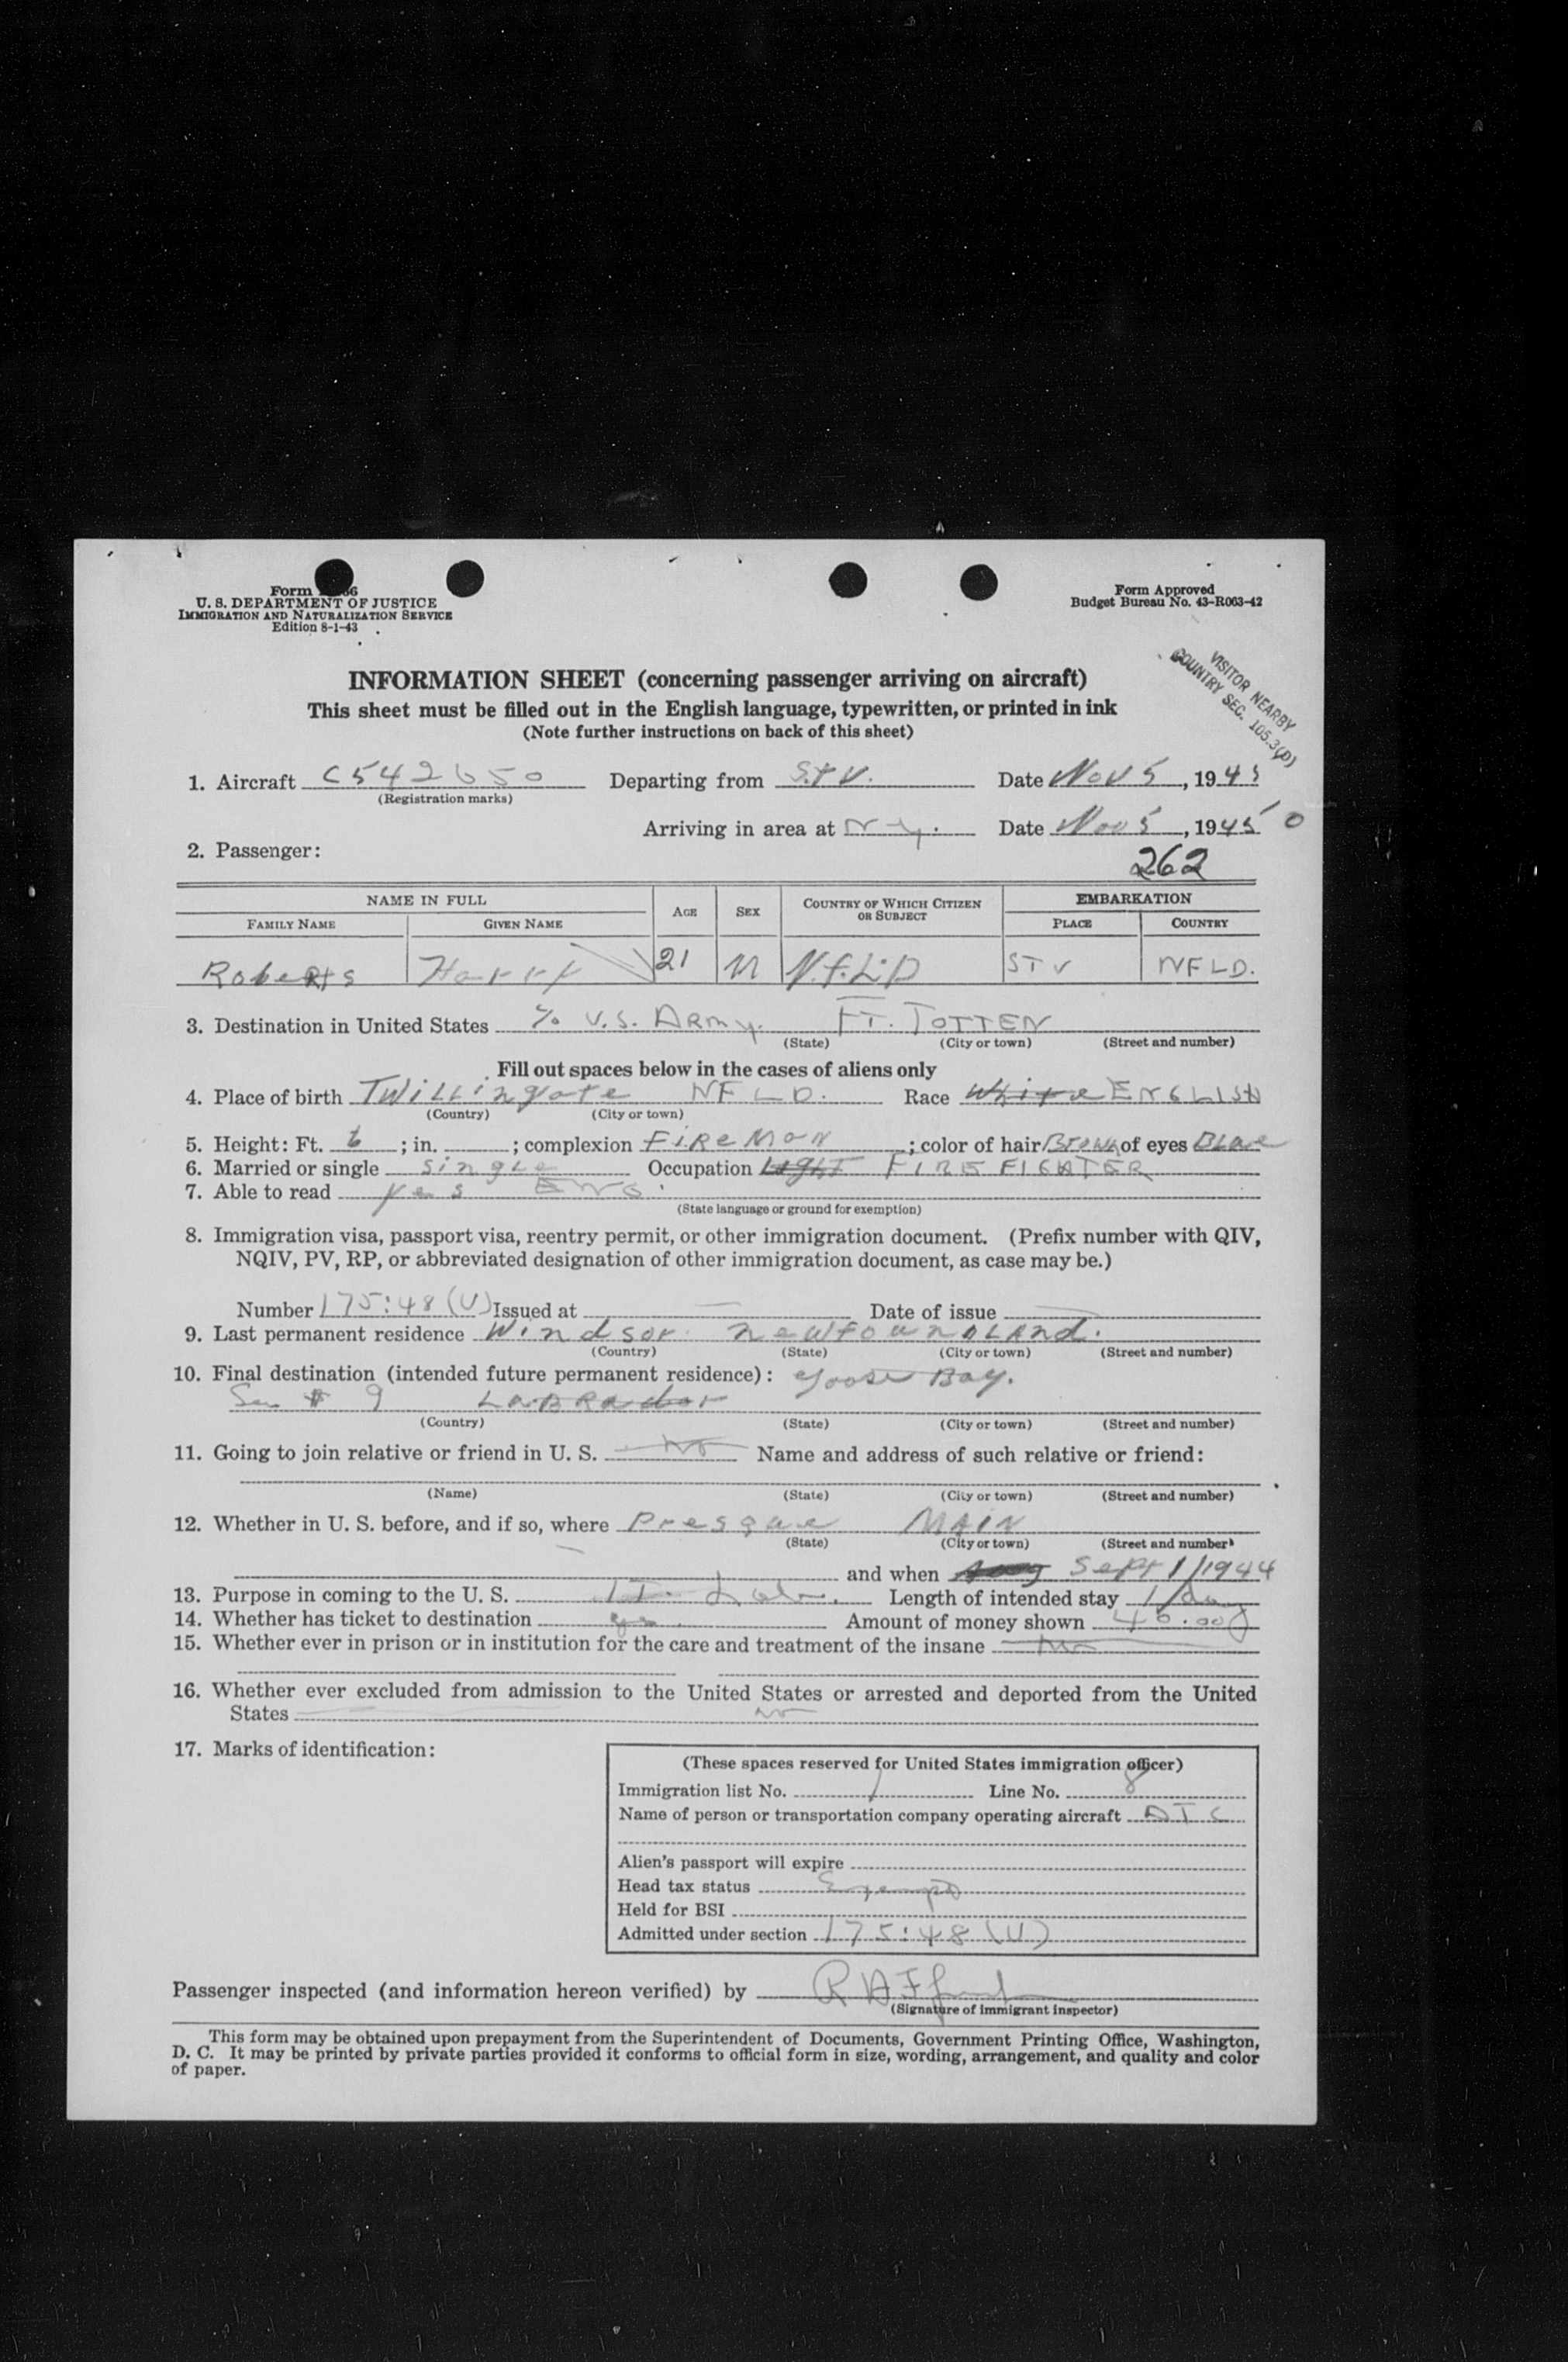 Form 66
U. S. DEPARTMENT OF JUSTICE
IMMIGRATION AND NATURALIZATION SERVICE
Edition 8-1-43
Form Approved
Budget Bureau No. 43-R063-42
VISITOR NEARBY
COUNTRY SEC. 105.3(D)
INFORMATION SHEET (concerning passenger arriving on aircraft)
This sheet must be filled out in the English language, typewritten, or printed in ink
(Note further instructions on back of this sheet)
1. Aircraft C542650 Departing from STV. Date Nov 5, 1945
(Registration marks)
Arriving in area at N.Y. Date Nov 5, 1945 0
2. Passenger:
262
NAME IN FULL AGE SEX COUNTRY OF WHICH CITIZEN OR SUBJECT EMBARKATION
FAMILY NAME GIVEN NAME PLACE COUNTRY
Roberts Harry 21 M N.F.L.D STV NFLD.
3. Destination in United States % U.S. Army. FT. TOTTEN
(State) (City or town) (Street and number)
Fill out spaces below in the cases of aliens only
4. Place of birth Twillingate NFLD. Race White ENGLISH
(Country) (City or town)
5. Height: Ft. 6; in. ; complexion FireMan; color of hair Brown of eyes Blue
6. Married or single single Occupation Light FIRE FIGHTER
7. Able to read yes ENG.
(State language or ground for exemption)
8. Immigration visa, passport visa, reentry permit, or other immigration document. (Prefix number with QIV,
NQIV, PV, RP, or abbreviated designation of other immigration document, as case may be.)
Number 175:48(U) Issued at — Date of issue —
9. Last permanent residence Windsor newfoundLAnd.
(Country) (State) (City or town) (Street and number)
10. Final destination (intended future permanent residence): Goose Bay.
# 9 LABRador
(Country) (State) (City or town) (Street and number)
11. Going to join relative or friend in U. S. No Name and address of such relative or friend:
(Name) (State) (City or town) (Street and number)
12. Whether in U. S. before, and if so, where Presque MAIN
(State) (City or town) (Street and number)
and when Sept 1/1944
13. Purpose in coming to the U. S. Length of intended stay 1 day
14. Whether has ticket to destination yes. Amount of money shown 40.00
15. Whether ever in prison or in institution for the care and treatment of the insane No
16. Whether ever excluded from admission to the United States or arrested and deported from the United
States No
17. Marks of identification:
(These spaces reserved for United States immigration officer)
Immigration list No. 1 Line No. 8
Name of person or transportation company operating aircraft ATC
Alien's passport will expire
Head tax status Exempt
Held for BSI
Admitted under section 175:48(U)
Passenger inspected (and information hereon verified) by
(Signature of immigrant inspector)
This form may be obtained upon prepayment from the Superintendent of Documents, Government Printing Office, Washington,
D. C. It may be printed by private parties provided it conforms to official form in size, wording, arrangement, and quality and color
of paper.